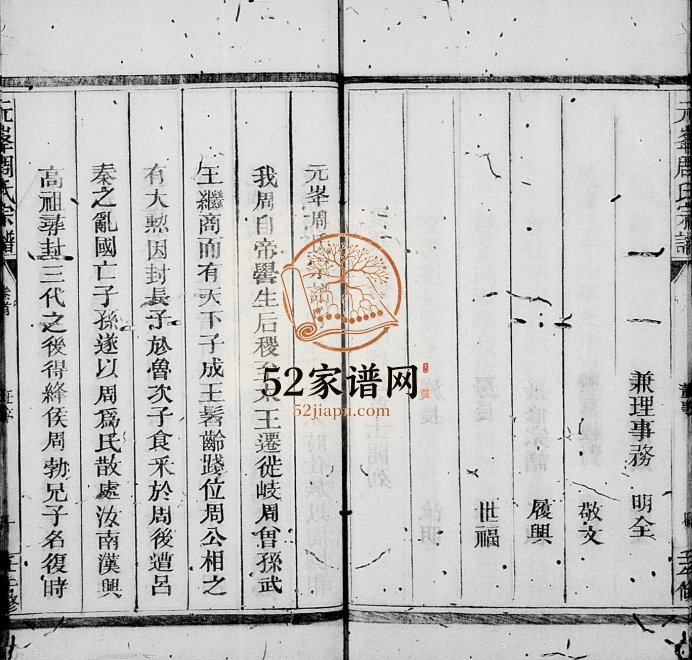 元峯周氏宗譜
兼理事務 明全
敬文
履興
世福
元峯周氏宗譜
我周自帝嚳生后稷至太王遷徙岐周曾孫武
王繼商而有天下子成王髫齡踐位周公相之
有大勲因封長子於魯次子食釆於周後遭呂
秦之亂國亡子孫遂以周為民散處汝南漢興
高祖尋封三代之後得絳侯周勃兄子名復時
元峯周氏宗譜
卷首
五修
52家谱网
52jiapu.com